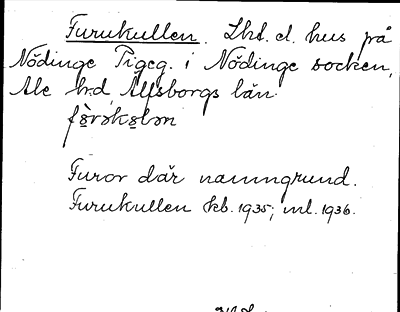 Furukullen. Lht. el. hus på
Nödinge Tigeg. i Nödinge socken,
Ale hd, Älfsborgs län.
Furor där namngrund.
Furukullen kb. 1935; ml. 1936.